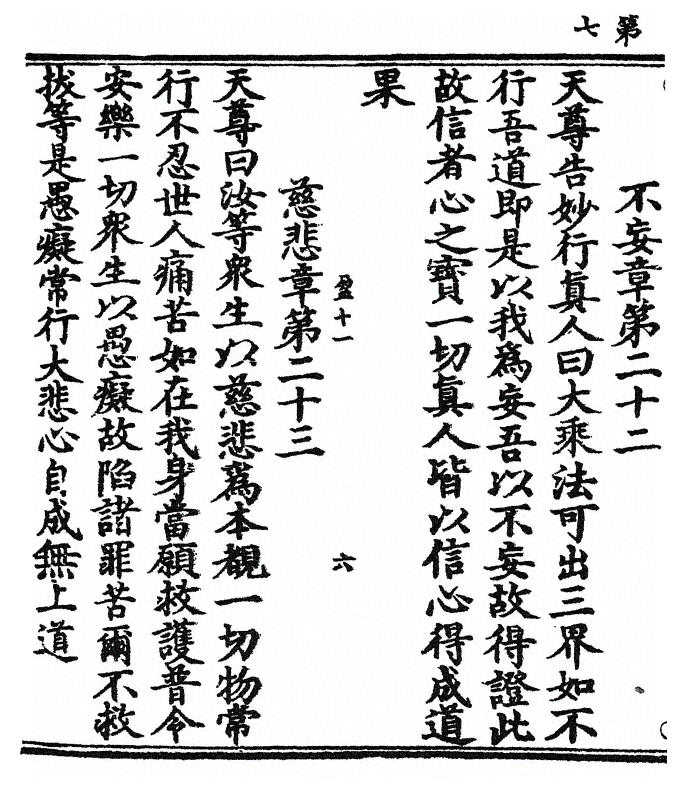 第七
不妄章第二十二
天尊告妙行真人曰大乘法可出三界如不
行吾道即是以我為妄吾以不妄故得證此
故信者心之寶一切真人皆以信心得成道
果
盈十一 六
慈悲章第二十三
天尊曰汝等衆生以慈悲為本觀一切物常
行不忍世人痛苦如在我身當願救護普令
安樂一切衆生以愚癡故陷諸罪苦爾不救
拔等是愚癡常行大悲心自成無上道